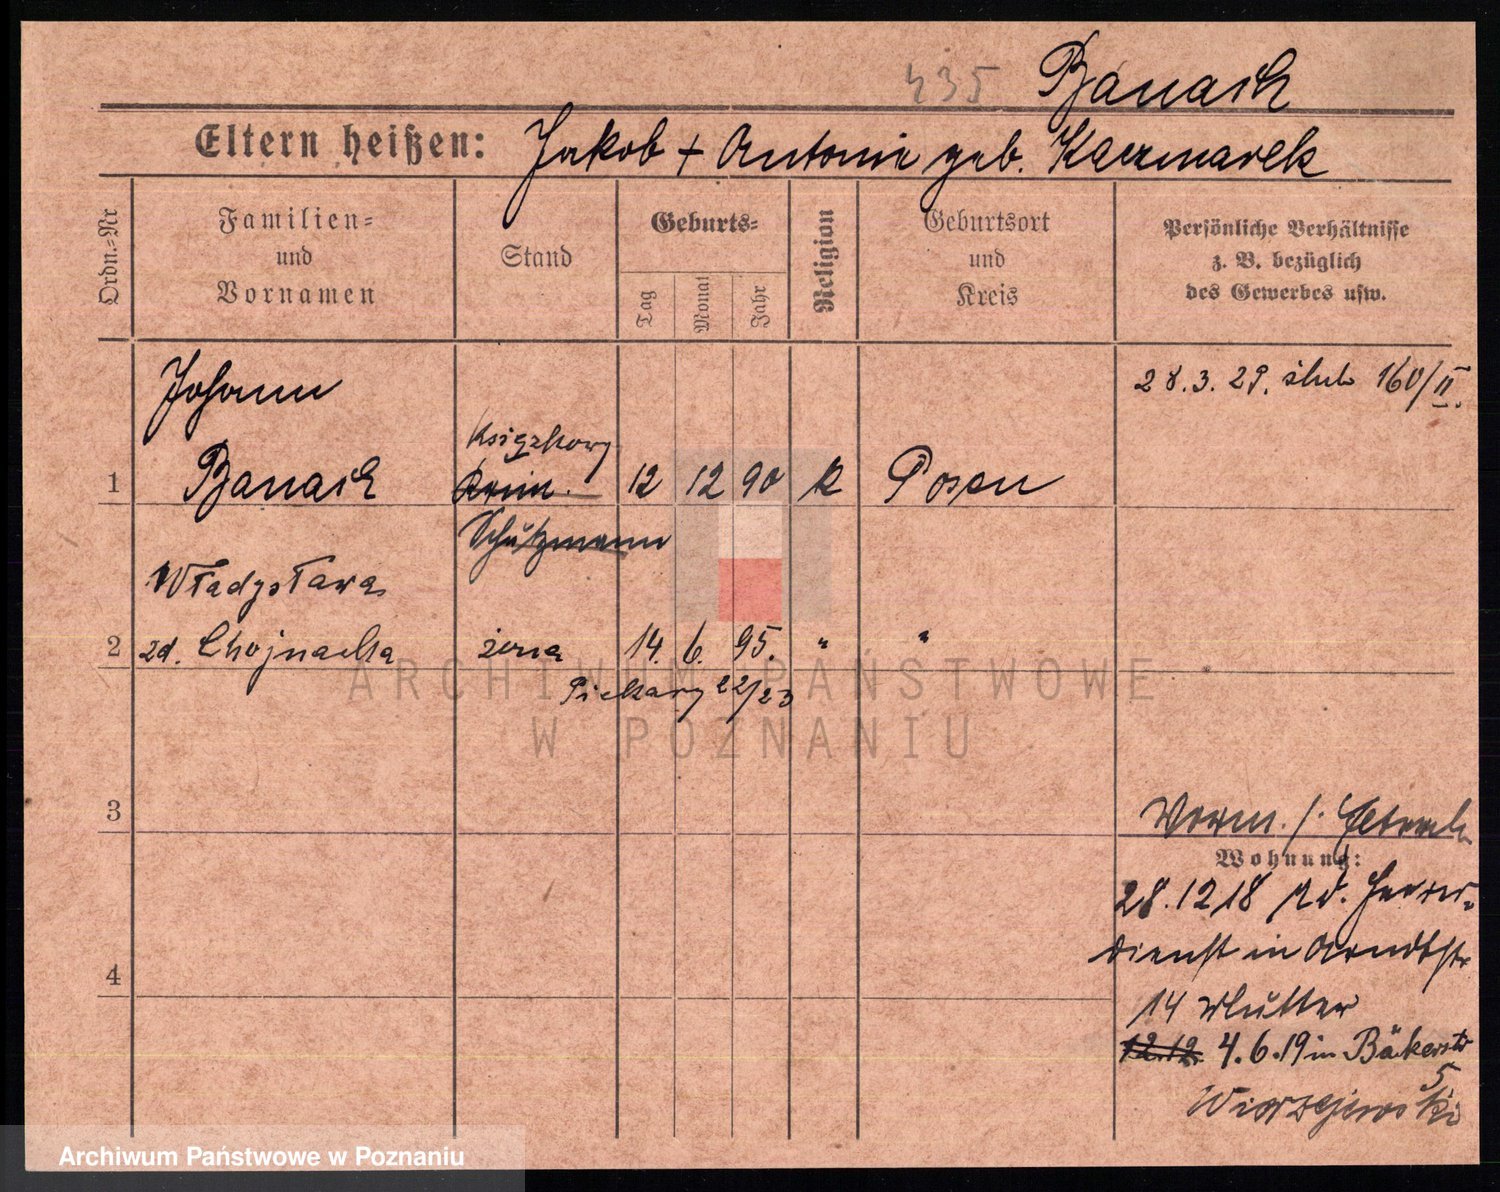 435 Banach
Eltern heißen: Jakob + Antonie geb. Kaczmarek
Ordn.-Nr
Familien- und Vornamen
Stand
Geburts-
Tag
Monat
Jahr
Religion
Geburtsort und Kreis
Persönliche Verhältnisse
z. B. bezüglich
des Gewerbes usw.
28.3.29. ślub 160/II.
Johann
Książkowy
1 Banach Krim. 12 12 90 k Posen
Schutzmann
Władysława
2 zd. Chojnacka żona 14. 6. 95. " "
Piekary 22/23
3
4
Wohnung:
28.12 18 Heeres-
dienst in Arndtstr
14 Mutter
12.12. 4.6.19 in Bäckerstr
5
Wierzejewski
ARCHIWUM PAŃSTWOWE
W POZNANIU
Archiwum Państwowe w Poznaniu